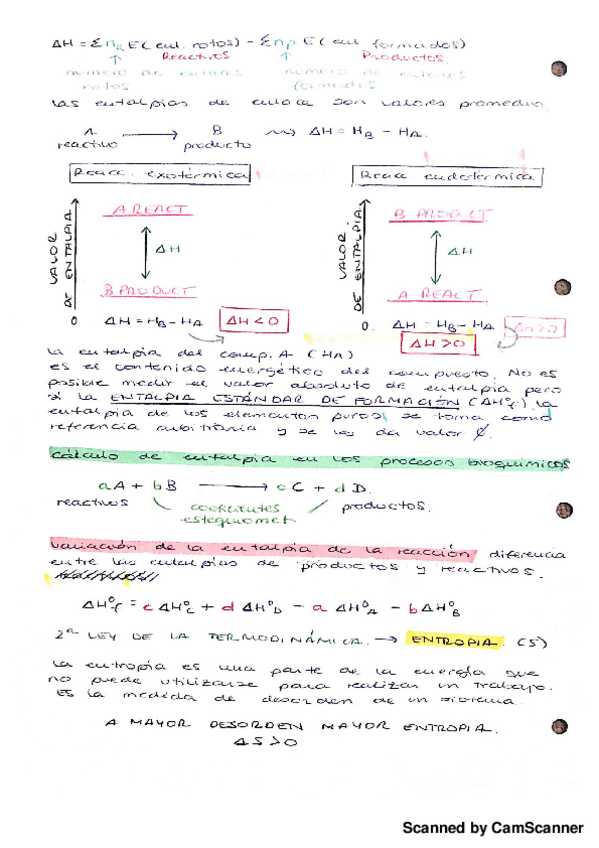 ΔH = Σn_R E (enl. rotos) - Σn_P E (enl formados)
Reactivos Productos
número de enlaces rotos número de enlaces formados
las entalpías de enlace son valores promedio.
A ⟶ B ⇝ ΔH = H_B - H_A.
reactivo producto
Reacc. exotérmica
VALOR DE ENTALPIA
A REACT
ΔH
B PRODUCT
0 ΔH = H_B - H_A ΔH < 0
Reacc endotérmica
VALOR DE ENTALPIA.
B PRODUCT
ΔH
A REACT.
0. ΔH = H_B - H_A ΔH > 0
ΔH > 0
la entalpía del comp. A (H_A)
es el contenido energético del compuesto. No es
posible medir el valor absoluto de entalpía pero
sí la ENTALPIA ESTÁNDAR DE FORMACIÓN (ΔH°f). la
entalpía de los elementos puros se toma como
referencia arbitraria y se les da valor 0.
cálculo de entalpía en los procesos bioquímicos
aA + bB ⟶ cC + dD.
reactivos coeficientes productos.
estequiomet.
variación de la entalpía de la reacción diferencia
entre las entalpías de productos y reactivos.
ΔH°f = c ΔH°C + d ΔH°D - a ΔH°A - b ΔH°B
2ª LEY DE LA TERMODINÁMICA. → ENTROPIA. (S)
la entropía es una parte de la energía que
no puede utilizarse para realizar un trabajo.
Es la medida de desorden de un sistema.
A MAYOR DESORDEN MAYOR ENTROPIA.
ΔS>0
Scanned by CamScanner